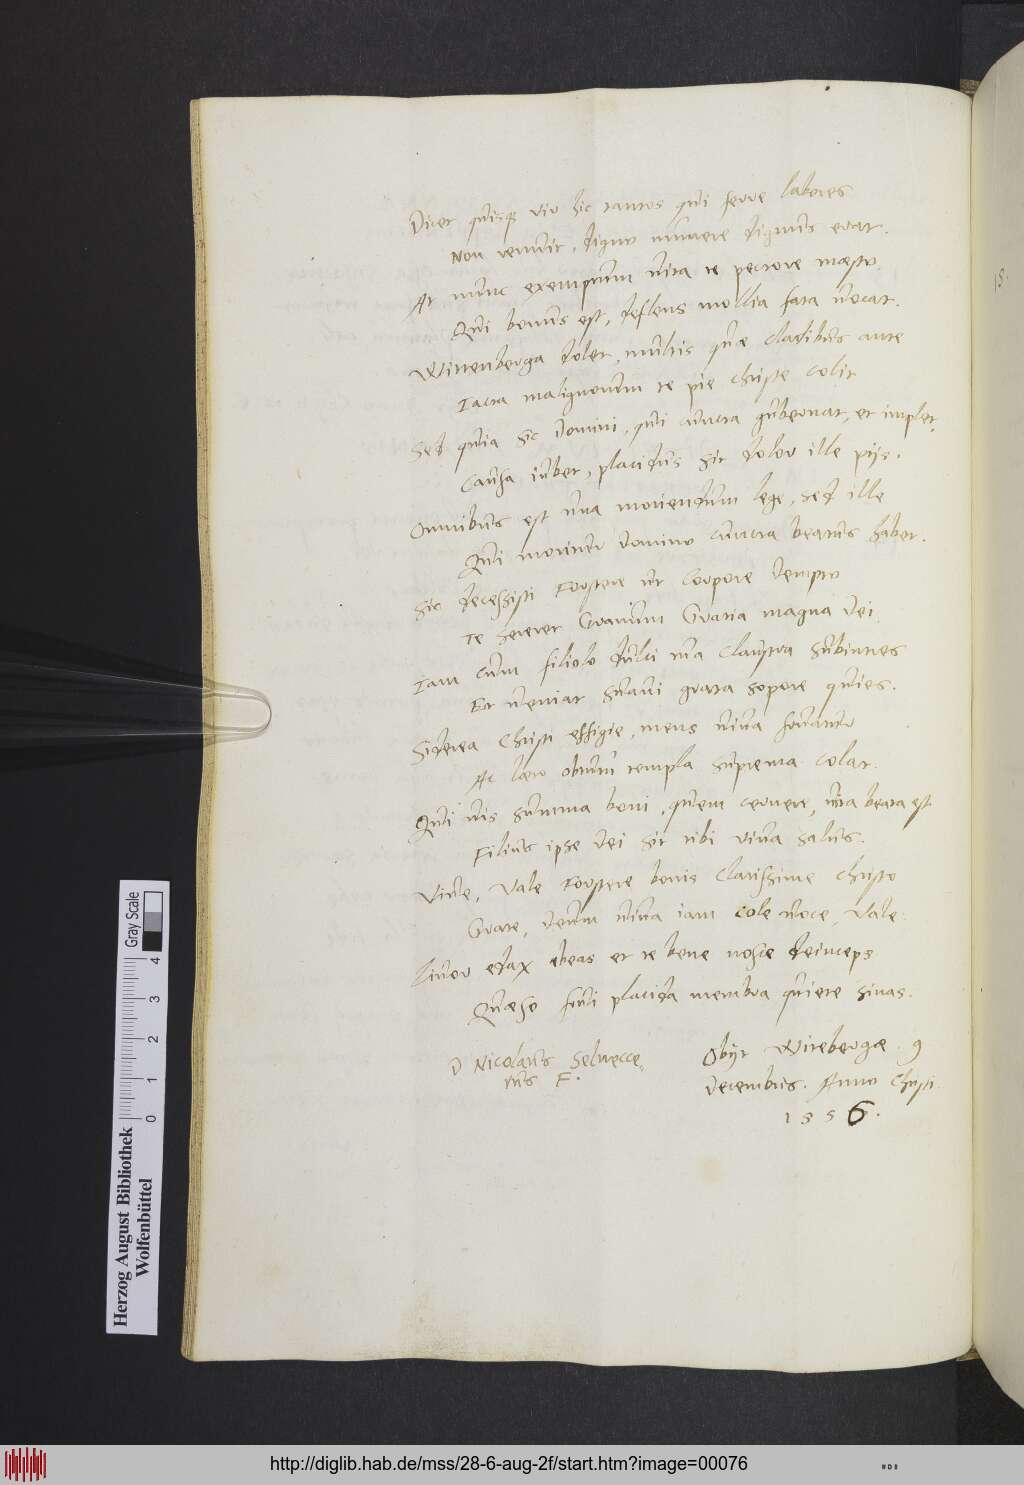 Dicet quisq vir hic tantos qui ferre labores
Non renuit, digno munere dignus erat.
At nunc exemptum vita te pectore mœsto
Qui bonus est, deflens mollia fata vocat.
Wittenberga dolet, multis quæ cladibus ante
Iacta malignorum te pie christe colit
Sed quia sic Domini, qui cuncta gubernat, et implet,
Causa iubet, placidus sit dolor ille pijs.
Omnibus est una moriendum lege, sed ille
Qui moritur Domino cuncta beatus habet.
Sic decessisti Forstere ut Corpore dempto
Te servet Gratum Gratia magna Dei.
Iam cum filiolo dulci tua claustra subintres
Et veniat suavi grata sopore quies.
Siderea Christi effigie, mens viva fovatur
Ac læto obtutu templa suprema colat.
Qui vis summa boni, quem cernere, vita beata est
Filius ipse Dei sit tibi viva salus.
Vive, Vale Forstere bonis Clarissime Christo
Grate, Deum viva iam cole voce, Vale.
Livor edax abeas et te bene nosce deinceps
Quæso frui placida membra quiete sinas.
D Nicolaus Selnecce
rus F.
Obijt Witebergæ. 9
Decembris. Anno Christi.
1556.
15.
Herzog August Bibliothek
Wolfenbüttel
Gray Scale
0 1 2 3 4
http://diglib.hab.de/mss/28-6-aug-2f/start.htm?image=00076